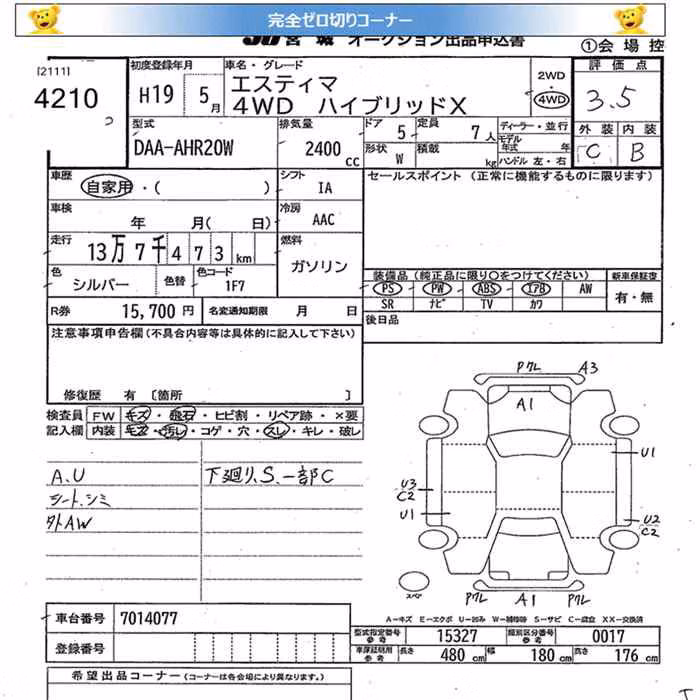 完全ゼロ切りコーナー
JU宮城 オークション出品申込書
①会場控
[2111]
4210
初度登録年月
H19 5月
車名・グレード
エスティマ
4WD ハイブリッドX
2WD
・
4WD
評価点
3.5
外装 内装
C B
型式
DAA-AHR20W
排気量
2400 CC
ドア 5
定員 7人
形状 W
積載 kg
ディーラー・並行
モデル年式 年
ハンドル 左・右
車歴
自家用・( )
シフト
IA
セールスポイント (正常に機能するものに限ります)
車検
年 月(日)
冷房
AAC
走行
13万7千473km
燃料
ガソリン
色
シルバー
色替
色コード
1F7
装備品(純正品に限り○をつけてください)
新車保証書
PS PW ABS エアB AW
SR ナビ TV カワ
有・無
R券
15,700円
名変通知期限 月 日
後日品
注意事項申告欄(不具合内容等は具体的に記入して下さい)
修復歴 有 [箇所 ]
検査員
記入欄
FW キズ・飛石・ヒビ割・リペア跡・×要
内装 キズ・汚レ・コゲ・穴・スレ・キレ・破レ
A.U
シート.シミ
外AW
下廻り.S.一部C
Pクレ A3
A1
U1
U3
C2
U1
U2
C2
スペア
Pクレ A1 Pクレ
A-キズ E-エクボ U-凹み W-補修跡 S-サビ C-腐食 XX-交換済
車台番号 7014077
登録番号
型式指定番号
参考
15327
類別区分番号
参考
0017
車庫証明用
参考
長さ 480cm
幅 180cm
高さ 176cm
希望出品コーナー(コーナーは各会場により異なります。)